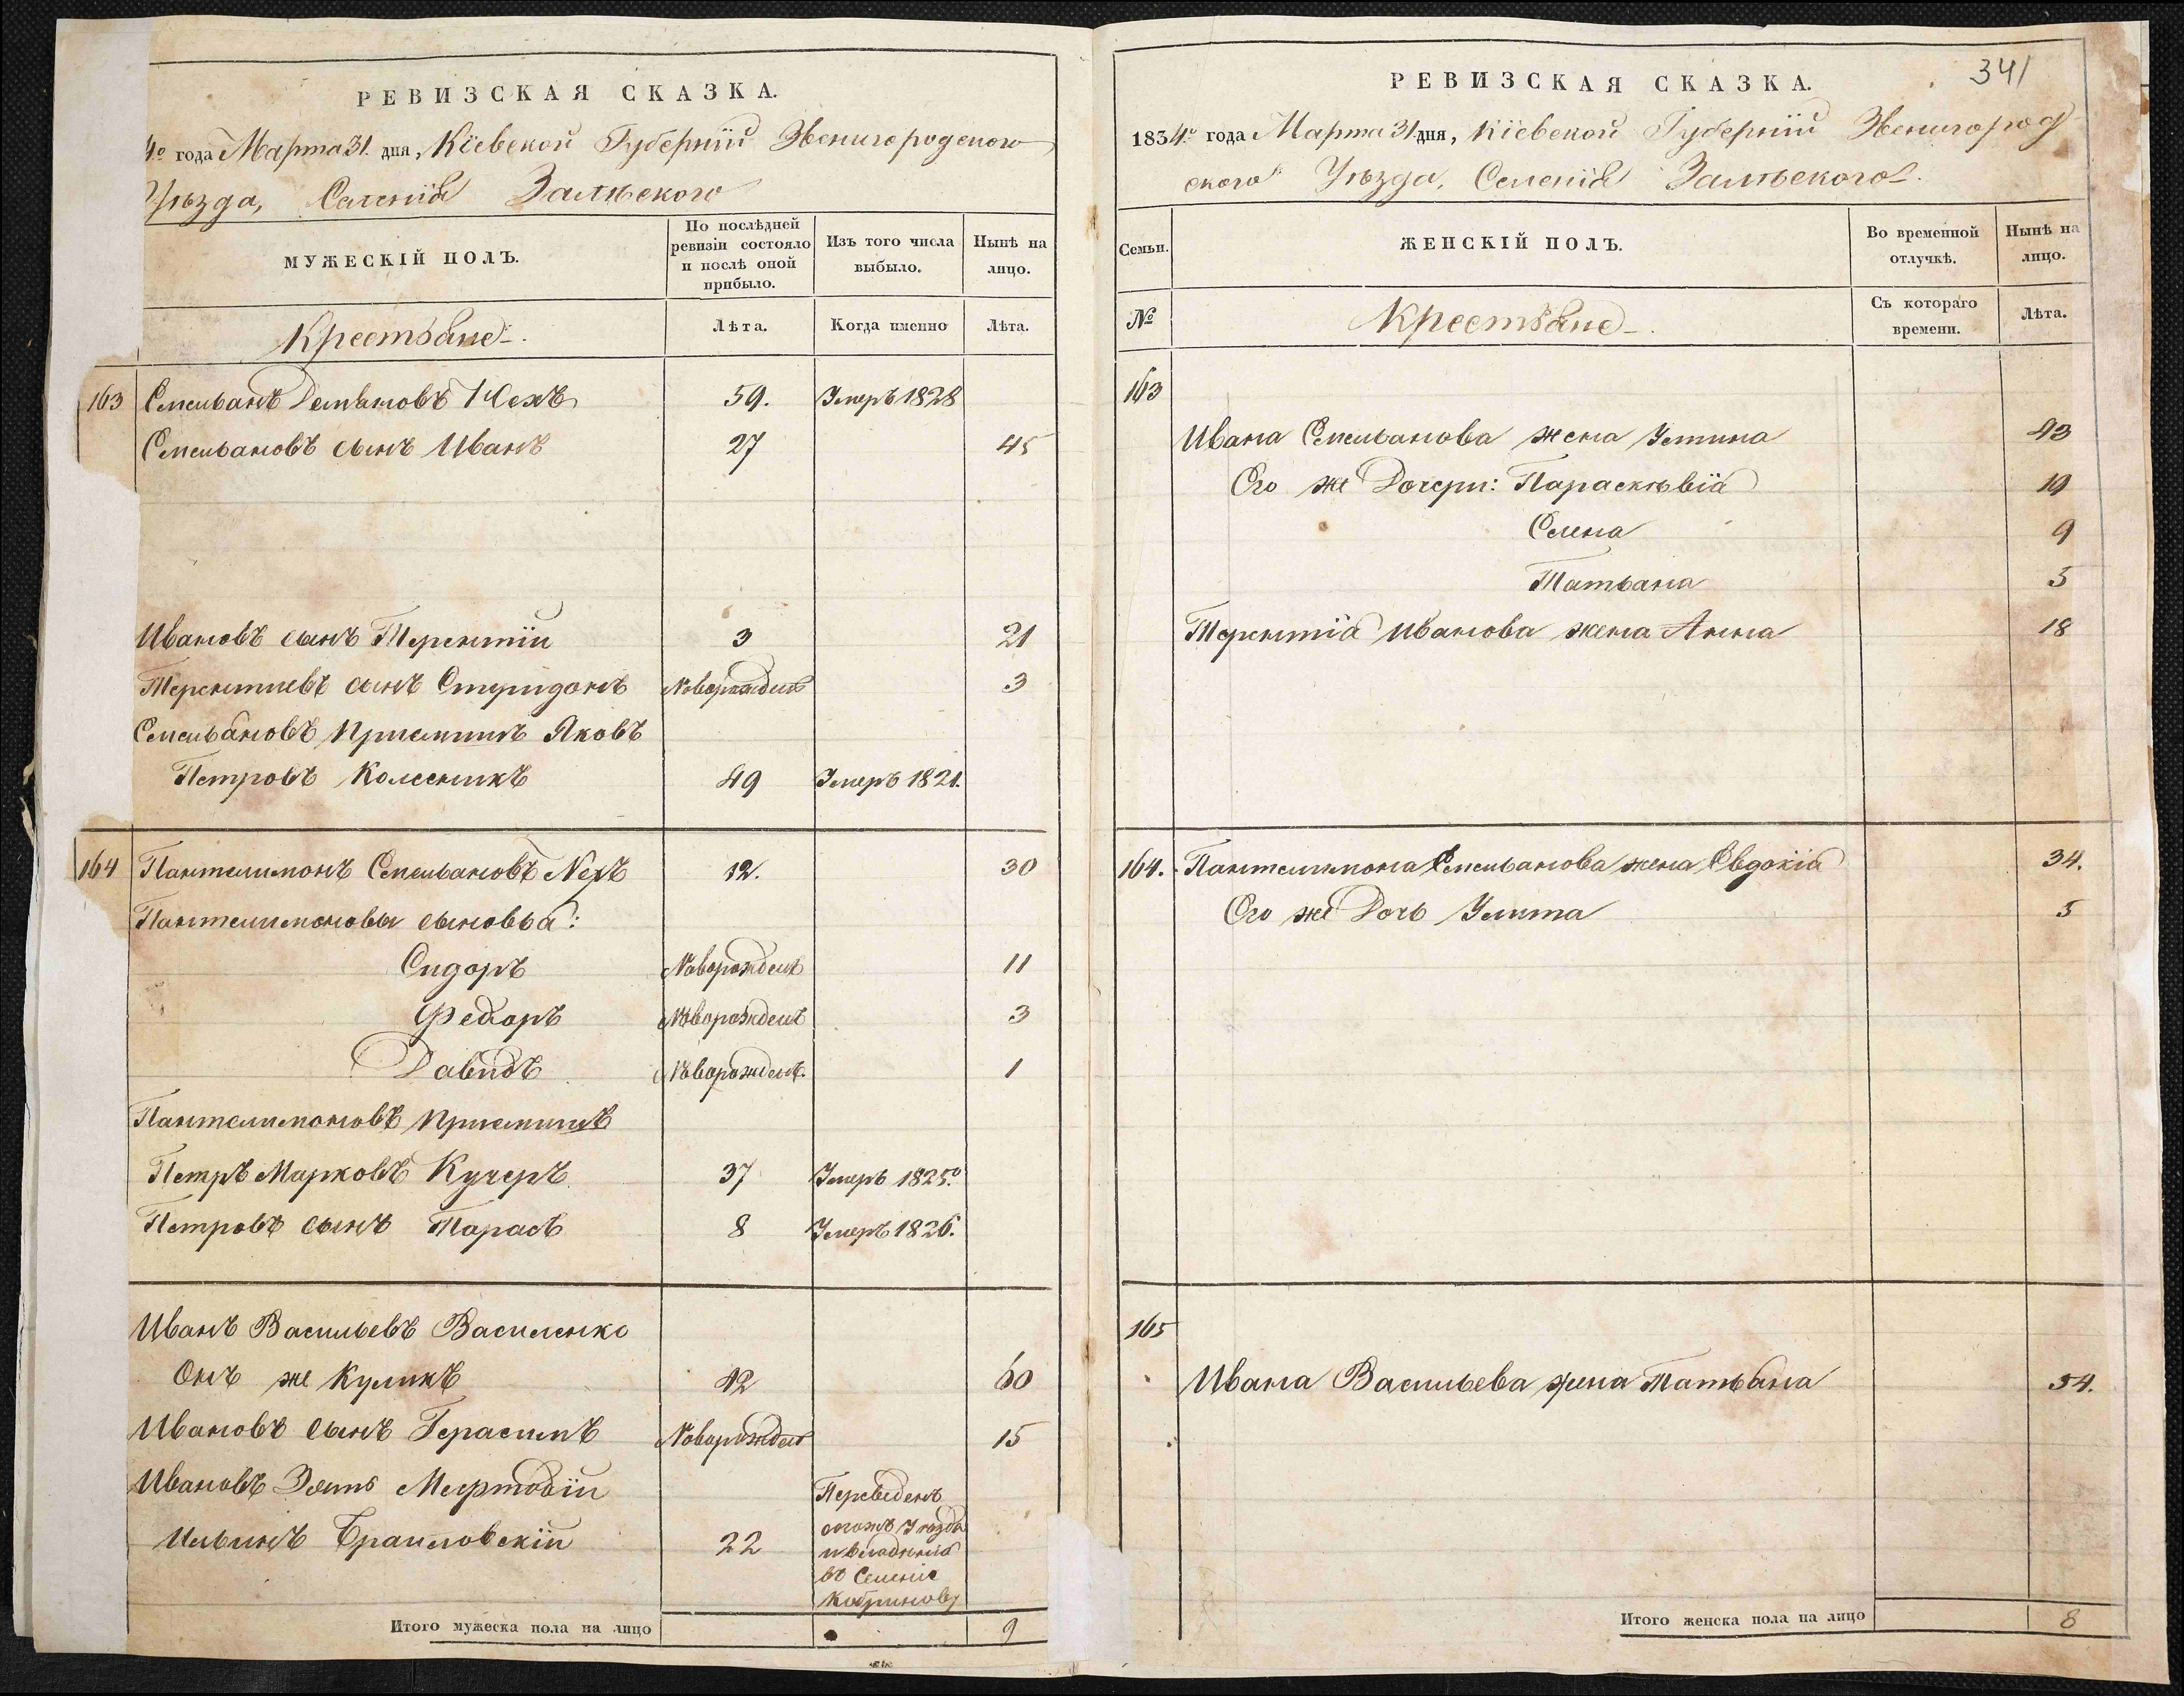 РЕВИЗСКАЯ СКАЗКА.
4.º года Марта 31. дня, Кіевской Губерніи Звенигородского
Уѣзда, Селенія Залѣского
МУЖЕСКІЙ ПОЛЪ.
По послѣдней ревизіи состояло и послѣ оной прибыло.
Изъ того числа выбыло.
Нынѣ на лицо.
Крестьяне.
Лѣта.
Когда именно
Лѣта.
163 Емельянъ Демьяновъ 59. Умеръ 1828
Емельяновъ сынъ Иванъ 27 45
Ивановъ сынъ Терентіи 3 21
Терентиевъ сынъ Спиридонъ Новорожденъ 3
Емельяновъ Приемишъ Яковъ
Петровъ Колесникъ 49 Умеръ 1821.
164 Пантелимонъ Емельяновъ 12. 30
Пантелимоновы сыновья:
Сидоръ Новорожденъ 11
Федоръ Новорожденъ 3
Давидъ Новорожденъ. 1
Пантелимоновъ Приемишъ
Петръ Марковъ Кучеръ 37 Умеръ 1825.º
Петровъ сынъ Тарасъ 8 Умеръ 1826.
Иванъ Васильевъ Василенко
Онъ же Куликъ 42 60
Ивановъ сынъ Герасимъ Новорожденъ 15
Ивановъ Зять Мефтодіи Переведенъ
Ильинъ Браиловскіи 22 тогожъ Уѣзда
и владѣнія
въ Селеніе
Кобринову
Итого мужеска пола на лицо 9
341
РЕВИЗСКАЯ СКАЗКА.
1834.º года Марта 31 дня, Кіевской Губерніи Звенигород
ского Уѣзда, Селенія Залѣского.
Семьи.
ЖЕНСКІЙ ПОЛЪ.
Во временной отлучкѣ.
Нынѣ на лицо.
№
Крестьяне.
Съ котораго времени.
Лѣта.
163
Ивана Емельянова жена Устина 43
Его же Дочери: Параскѣвія 19
Елена 9
Татьяна 5
Терентія Иванова жена Анна 18
164. Пантелимона Емельянова жена Евдокія 34.
Его же Дочь Улита 5
165
Ивана Васильева жена Татьяна 54.
Итого женска пола на лицо 8